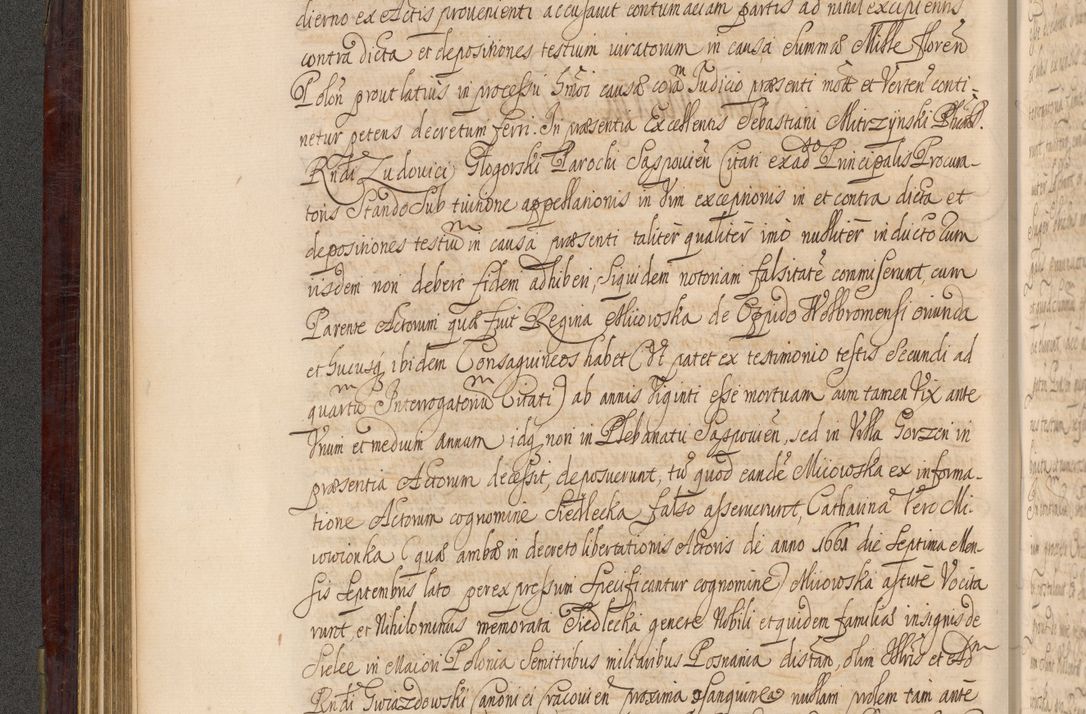 dierno ex Actis provenienti accusavit contumaciam partis ad nihil excipientis
contra dicta et depositiones testium iuratorum in causa, Summæ Mille floren
Polon prout latius in processu hmoi causæ coram Judicio præsenti mot et Verten conti=
netur petens decretum ferri. In præsentia Excellentis Sebastiani Mitrzynski
Rndi Ludovici Głogorski Parochi Saspovien Citati ex adto Principalis Procura-
toris Stando Sub tuitione appellationis in Vim exceptionis in et contra dicta et
depositiones testium in causa præsenti taliter qualiter imo nulliter inductorum
iisdem non deberi fidem adhiberi, Siquidem notoriam falsitate commiserunt, cum
Parens Actorum quæ fuit Regina Miiowska de Oppido Wolbromensi oriunda
et hucusq ibidem Consaguineos habet (Vt patet ex testimonio testis Secundi ad
quartum Interrogatorium Citati) ab annis Viginti esse mortuam cum tamen Vix ante
Vnum et medium annum idq non in Plebanatu Saspovien, sed in Villa Gorzen in
præsentia Actorum decessit, deposuerunt, tu quod eande Miiowska ex informa-
tione Actorum cognomine Siedlecka falso asseruerunt, Catharina Vero Mi-
iowionka (quæ ambæ in decreto libertationis Actoris de anno 1661 die Septima Men-
sis Septembris lato per expressum Specificantur cognomine) Miiowska astute Vocita
runt, et Nihilominus memorata Siedlecka genere Nobili et quidem familiæ insignis de
Sielec in Maiori Polonia Semitribus miliaribus Posnania distan, olim Illris et Adm
Rndi Gwiazdowski Canonici Cracovien proxima Sanguine nullam prolem tam ante